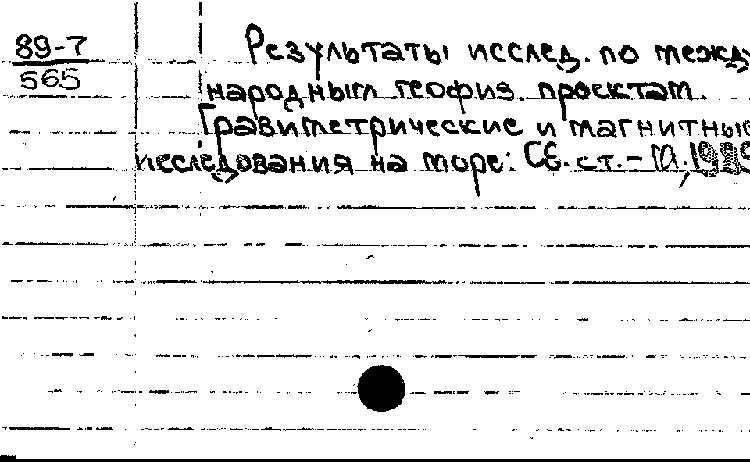 89-7
565
Результаты исслед. по межд
народным геофиз. проектам.
Гравиметрические и магнитные
исследования на море: Сб. ст. - М., 1989